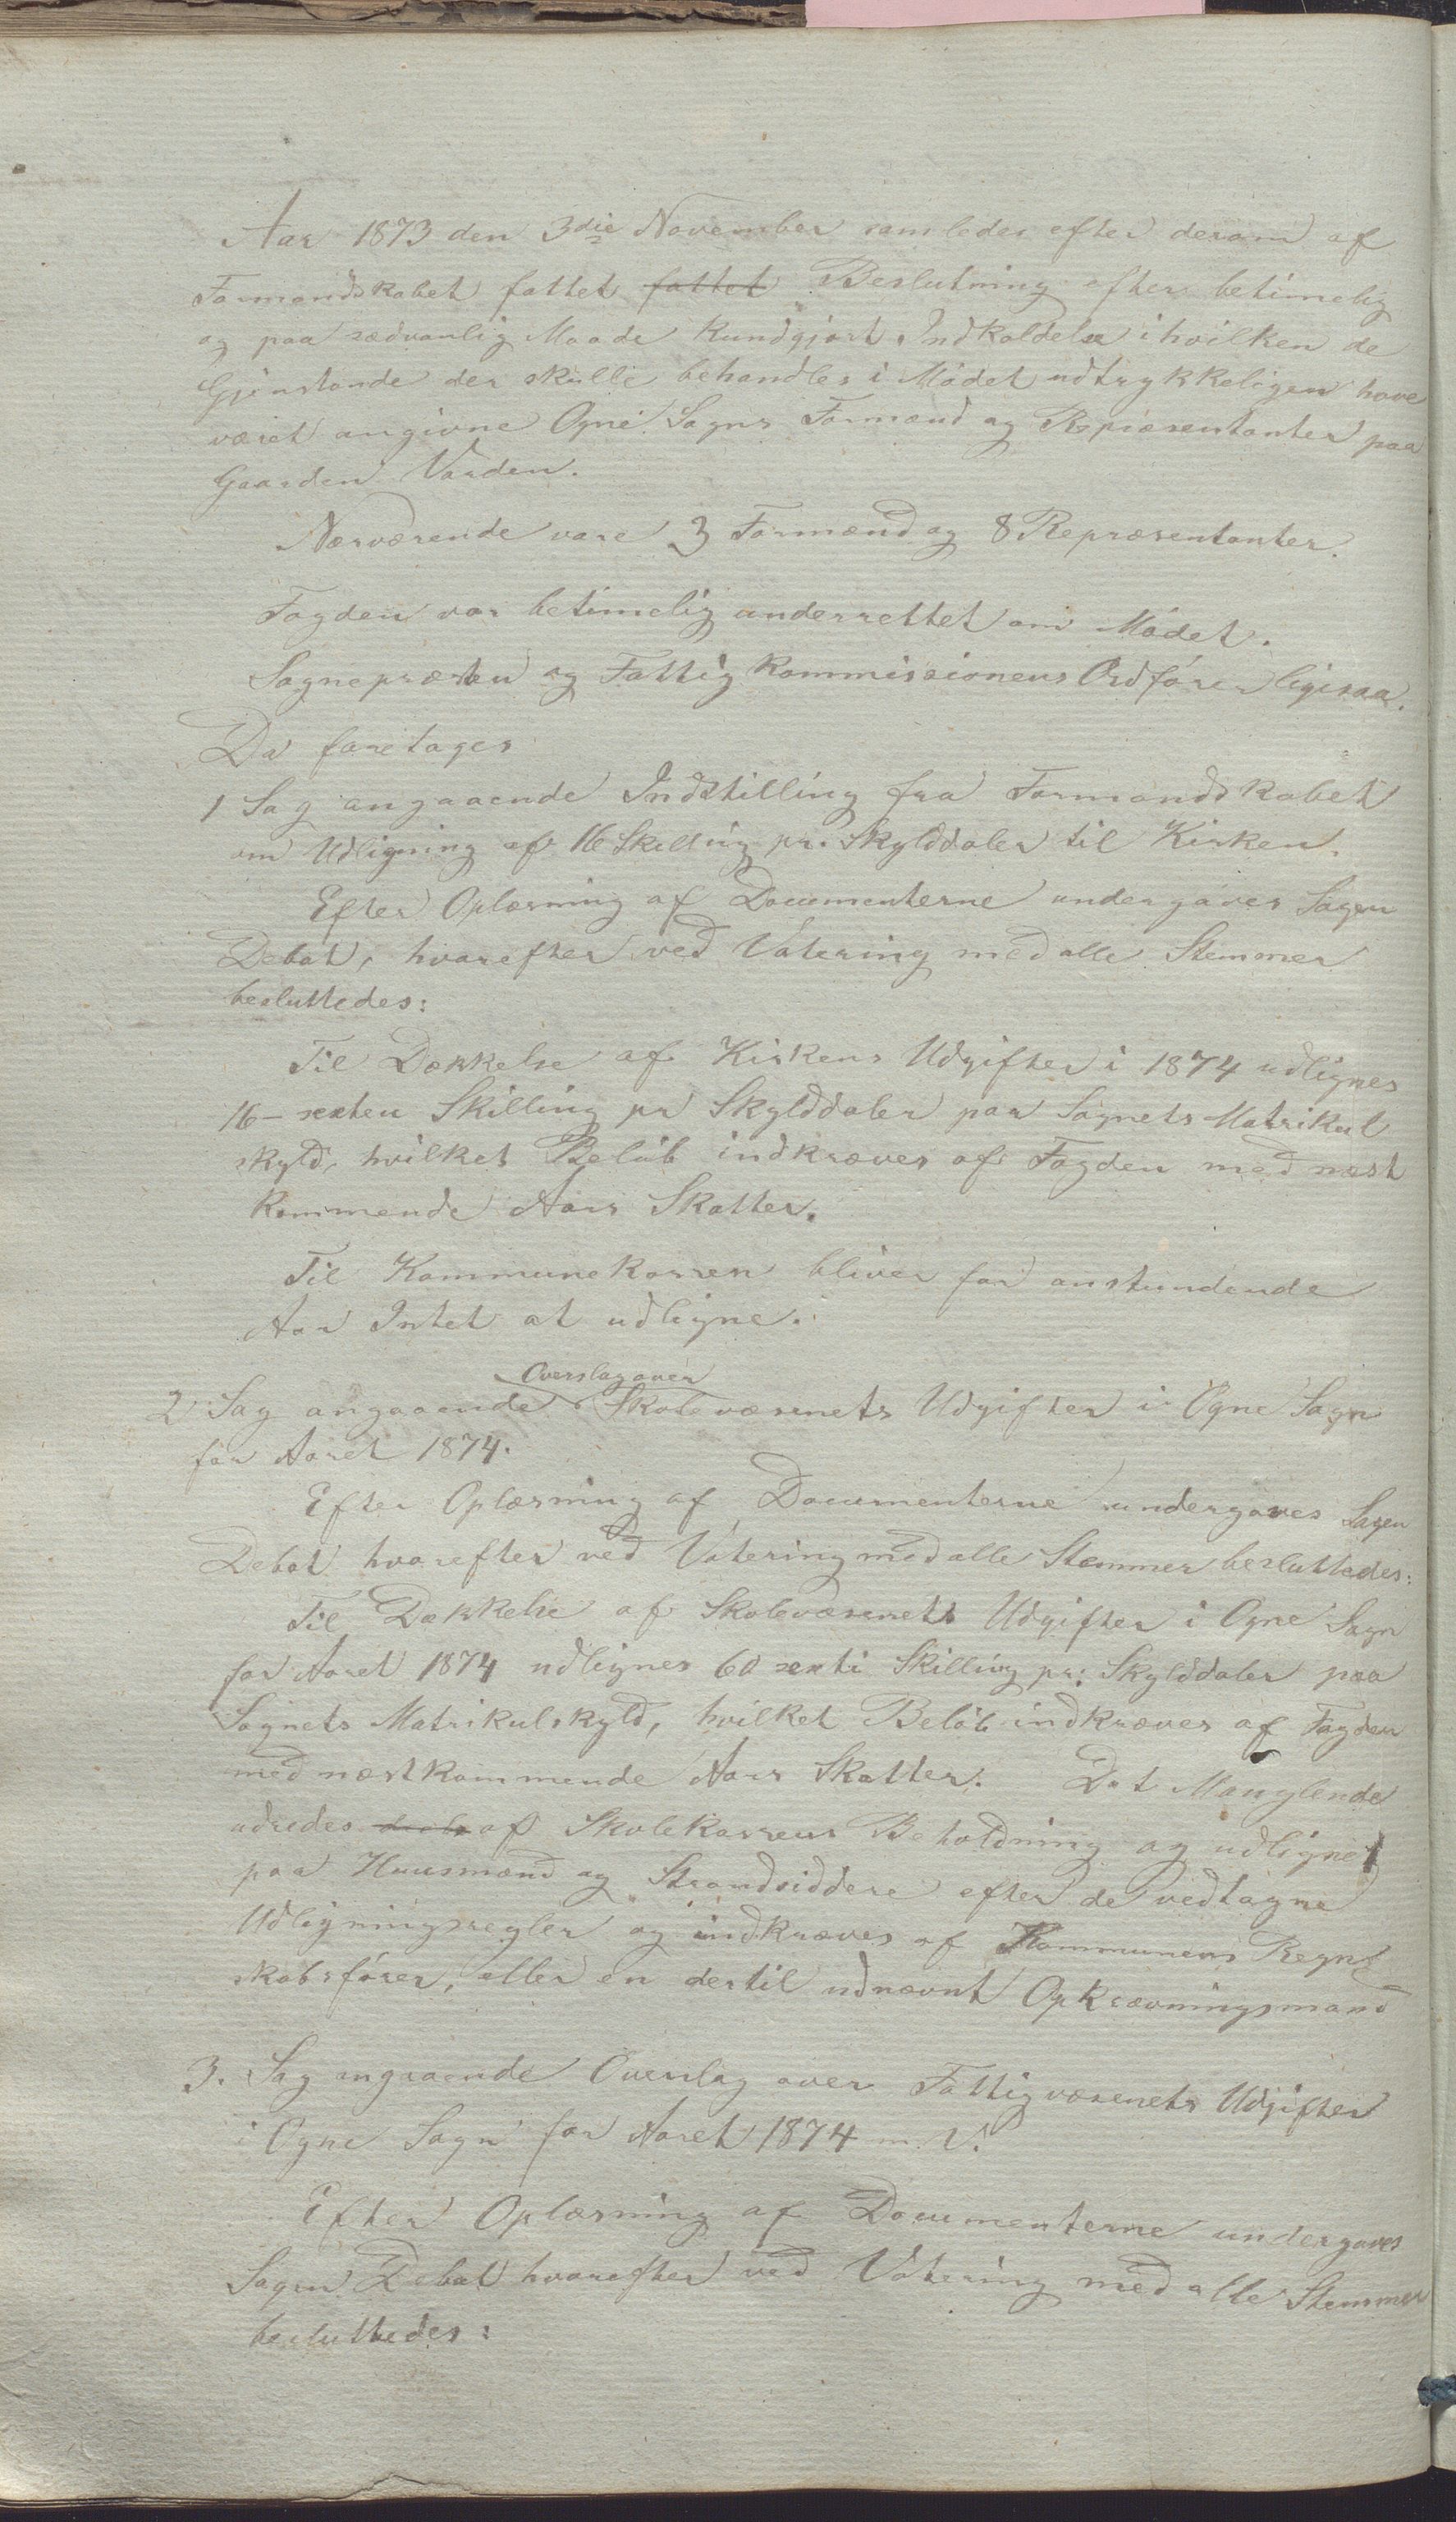 Aar 1873 den 3die November samledes efter derom af
Formandskabet fattet fattet Beslutning efter betimelig
og paa sædvanlig Maade kundgjort Indkaldelse i hvilken de
Gjenstande der skulle behandles i Mödet udtrykkeligen have
været angivne Ogne Sogns Formænd og Repræsentanter paa
Gaarden Varden.
Nærværende vare 3 Formænd og 8 Repræsentanter.
Fogden var betimelig underrettet om Mödet.
Sognepræsten og Fattigkommissionens Ordförer ligesaa.
Da foretages
1 Sag angaaende Indstilling fra Formandskabet
om Udligning af 16 Skilling pr. Skylddaler til Kirken.
Efter Oplæsning af Documenterne undergaves Sagen
Debat, hvorefter ved Votering med alle Stemmer
besluttedes:
Til Dækkelse af Kirkens Udgifter i 1874 udlignes
16 – sexten Skilling pr Skylddaler paa Sognets Matrikul
skyld, hvilket Belöb indkræves af Fogden med næst
kommende Aars Skatter.
Til Kommunekassen bliver for anstundende
Aar Intet at udligne.
Overslag over
2 Sag angaaende Skolevæsenets Udgifter i Ogne Sogn
for Aaret 1874.
Efter Oplæsning af Documenterne undergaves Sagen
Debat hvorefter ved Votering med alle Stemmer besluttedes:
Til Dækkelse af Skolevæsenets Udgifter i Ogne Sogn
for Aaret 1874 udlignes 60 sexti Skilling pr: Skylddaler paa
Sognets Matrikulskyld, hvilket Belöb indkræves af Fogden
med næstkommende Aars Skatter. Det Manglende
udredes deels af Skolekassens Beholdning og udlignet
paa Huusmænd og Strandsiddere efter de vedtagne
Udligningsregler og indkræves af Kommunens Regn-
skabsförer, eller en dertil udnævnt Opkrævningsmand
3. Sag angaaende Overslag over Fattigvæsenets Udgifter
i Ogne Sogn for Aaret 1874 m. V.
Efter Oplæsning af Documenterne undergaves
Sagen Debat hvorefter ved Votering med alle Stemmer
besluttedes: